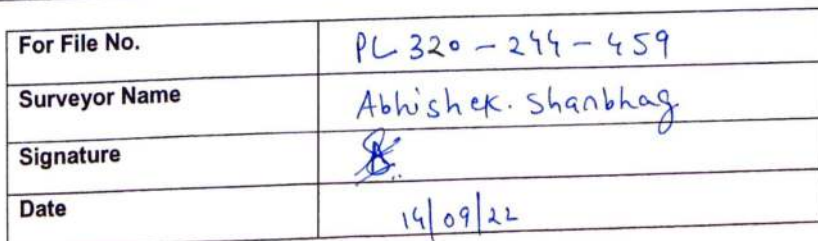 For File No. PL 320 - 244 - 459
Surveyor Name Abhishek. Shanbhag
Signature
Date 14/09/22